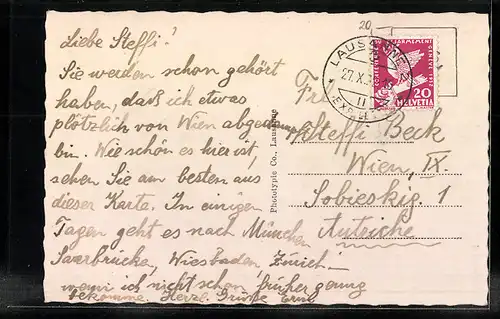 Liebe Steffi!
Sie werden schon gehört
haben, daß ich etwas
plötzlich von Wien abgedampft
bin. Wie schön es hier ist,
sehen Sie am besten aus
dieser Karte. In einigen
Tagen geht es nach München
Saarbrücken, Wiesbaden, Zürich
wenn ich nicht schon früher genug
bekomme. Herzl. Grüße Erna
Phototypie Co., Lausanne
20
LAUSANNE 2
27.X.
HELVETIA
20
Steffi Beck
Wien, IX.
Sobieskig. 1
Autriche